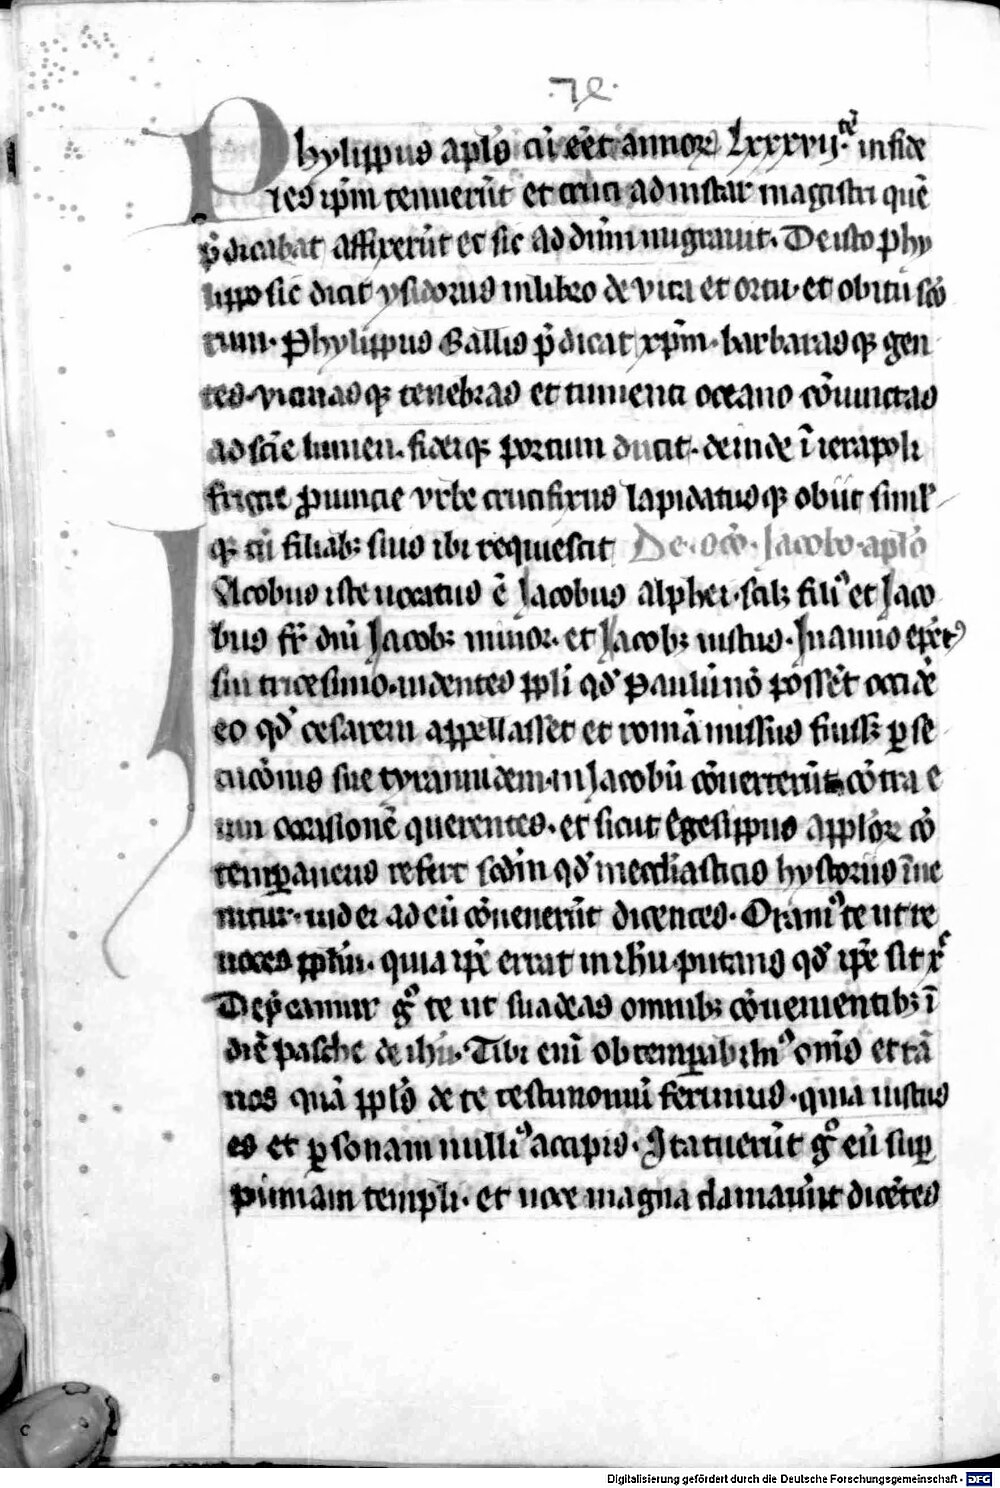 ·72·
Phylippus apl's cũ eẽt annoꝝ Lxxxvij·tẽ infide
les ip̃m tenuerũt et cruci ad instar magistri quẽ
p̃dicabat affixerũt et sic ad dñm migrauit. De isto phy
lippo sic dicit ysidorus in libro de vita et ortu· et obitu scõ
rum. Phylippus Gallis p̃dicat xp̃m· barbarasqꝫ gen
tes· vicinasqꝫ tenebras et tumenti oceano cõiunctas
ad sciẽ lumen· fideiqꝫ portum ducit· deinde ĩ ierapoli
frigie ꝓuincie vrbe crucifixus lapidatusqꝫ obiit simlꝰ
qꝫ cũ filiabꝫ suis ibi requiescit De· scõ· Jacobo· aplõ
Iacobus iste uocatus ẽ Jacobus alphei· scilꝫ filiꝰ et Jaco
bus fr̃ dñi Jacobꝫ minor· et Jacobꝫ iustus· In anno ep̃atꝰ
sui tricesimo· iudentes ppl'i qđ Paulũ nõ possẽt occidẽ
eo qđ cesarem appellasset et romã missus fuissꝫ ꝑse
cucõnis sue tyrannidem· in Jacobũ cõuerterũt cõtra e
um occasionẽ querentes· et sicut Egesippus applõꝝ cõ
temꝑaneus refert scđm qđ in eccliasticis hystoriis ĩue
nitur· iudei ad eũ cõuenerũt dicentes· Oramꝰ te ut re
uoces ppl'm· quia ip̃e errat in ihũ· putans qđ ip̃e sit xᷓ
Dep̃camur gͦ te ut suadeas omnibꝫ cõuenientibꝫ ĩ
diẽ pasche de ihũ· Tibi enĩ obtemꝑabimꝰ om̃s et tã
nos quã ppl's de te testimoniũ ferimus· quia iustus
es et ꝑsonam nulliꝰ accipis· Statuerũt gͦ eũ suꝑ
pinnam templi· et uoce magna clamauer̃t dicẽtes
Digitalisierung gefördert durch die Deutsche Forschungsgemeinschaft - DFG